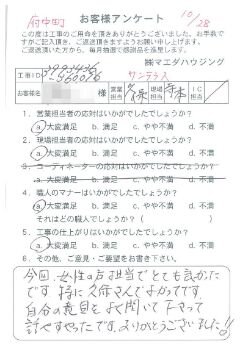 府中町
お客様アンケート
10/28
この度は工事のご用命を頂きありがとうございました。お手数で
すがご記入頂き、ご返送頂きますようお願い申し上げます。
ご返送頂いた方から、毎月抽選で感謝品を進呈します。
㈱マエダハウジング
工事ID
サンテラス
お客様名
様
営業担当
久保
現場担当
IC担当
1. 営業担当者の応対はいかがでしたでしょうか?
a. 大変満足 b. 満足 c. やや不満 d. 不満
2. 現場担当者の応対はいかがでしたでしょうか?
a. 大変満足 b. 満足 c. やや不満 d. 不満
3. コーディネーターの応対はいかがでしたでしょうか?
a. 大変満足 b. 満足 c. やや不満 d. 不満
4. 職人のマナーはいかがでしたでしょうか?
a. 大変満足 b. 満足 c. やや不満 d. 不満
それはどの職人でしょうか? ( )
5. 工事の仕上がりはいかがでしたでしょうか?
a. 大変満足 b. 満足 c. やや不満 d. 不満
6. その他、ご意見・ご要望をお書き下さい。
今回、女性の方担当でとても良かった
です 特に久保さんでよかったです。
自分の意見をよく聞いて下さって
話やすかったです。ありがとうございました!!